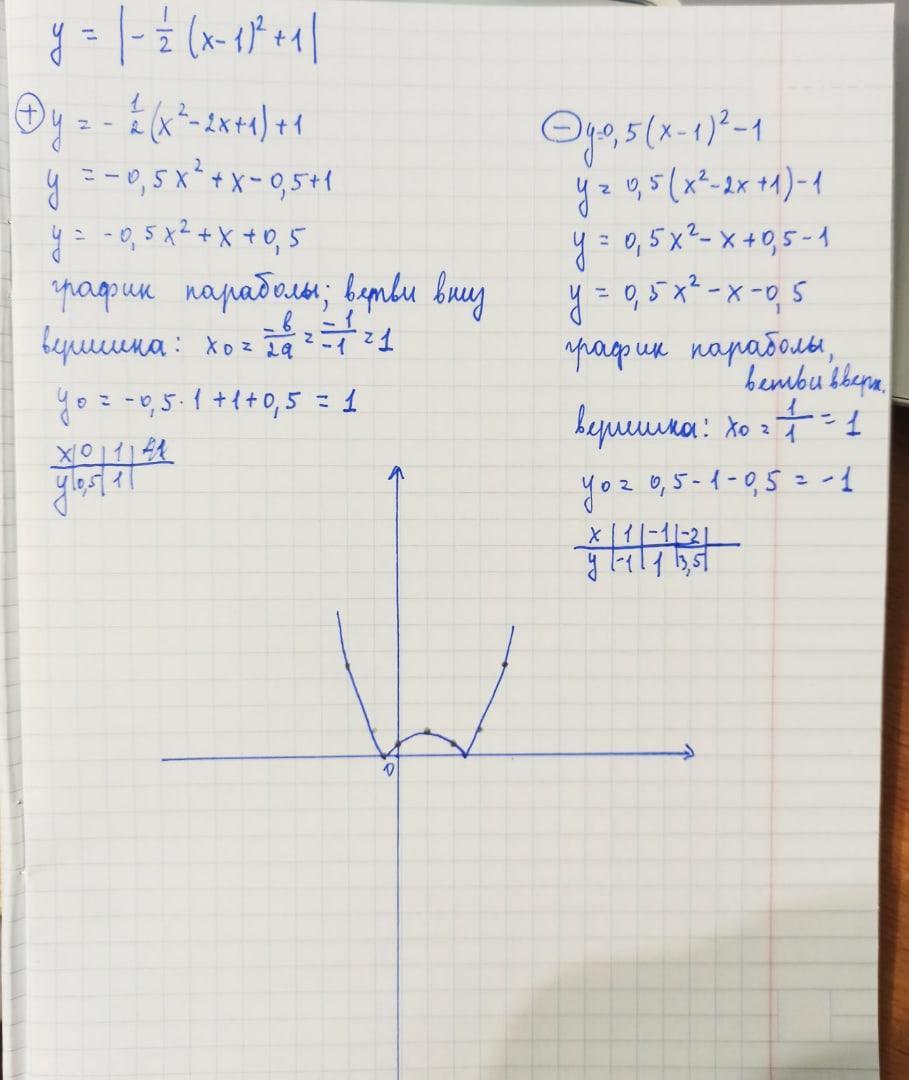 y = |- 1/2 (x-1)² + 1|
⊕ y = - 1/2 (x² - 2x+1) + 1
y = -0,5x² + x - 0,5+1
y = -0,5x² + x + 0,5
график параболы; ветви вниз
вершина: x₀ = -в/2a = -1/-1 = 1
y₀ = -0,5·1 + 1 + 0,5 = 1
x | 0 | 1 |
y | 0,5 | 1 |
⊖ y=0,5(x-1)² - 1
y = 0,5(x²-2x+1) - 1
y = 0,5x² - x + 0,5 - 1
y = 0,5x² - x - 0,5
график параболы,
ветви вверх.
вершина: x₀ = 1/1 = 1
y₀ = 0,5 - 1 - 0,5 = -1
x | 1 | -1 | -2 |
y | -1 | 1 | 3,5 |
0